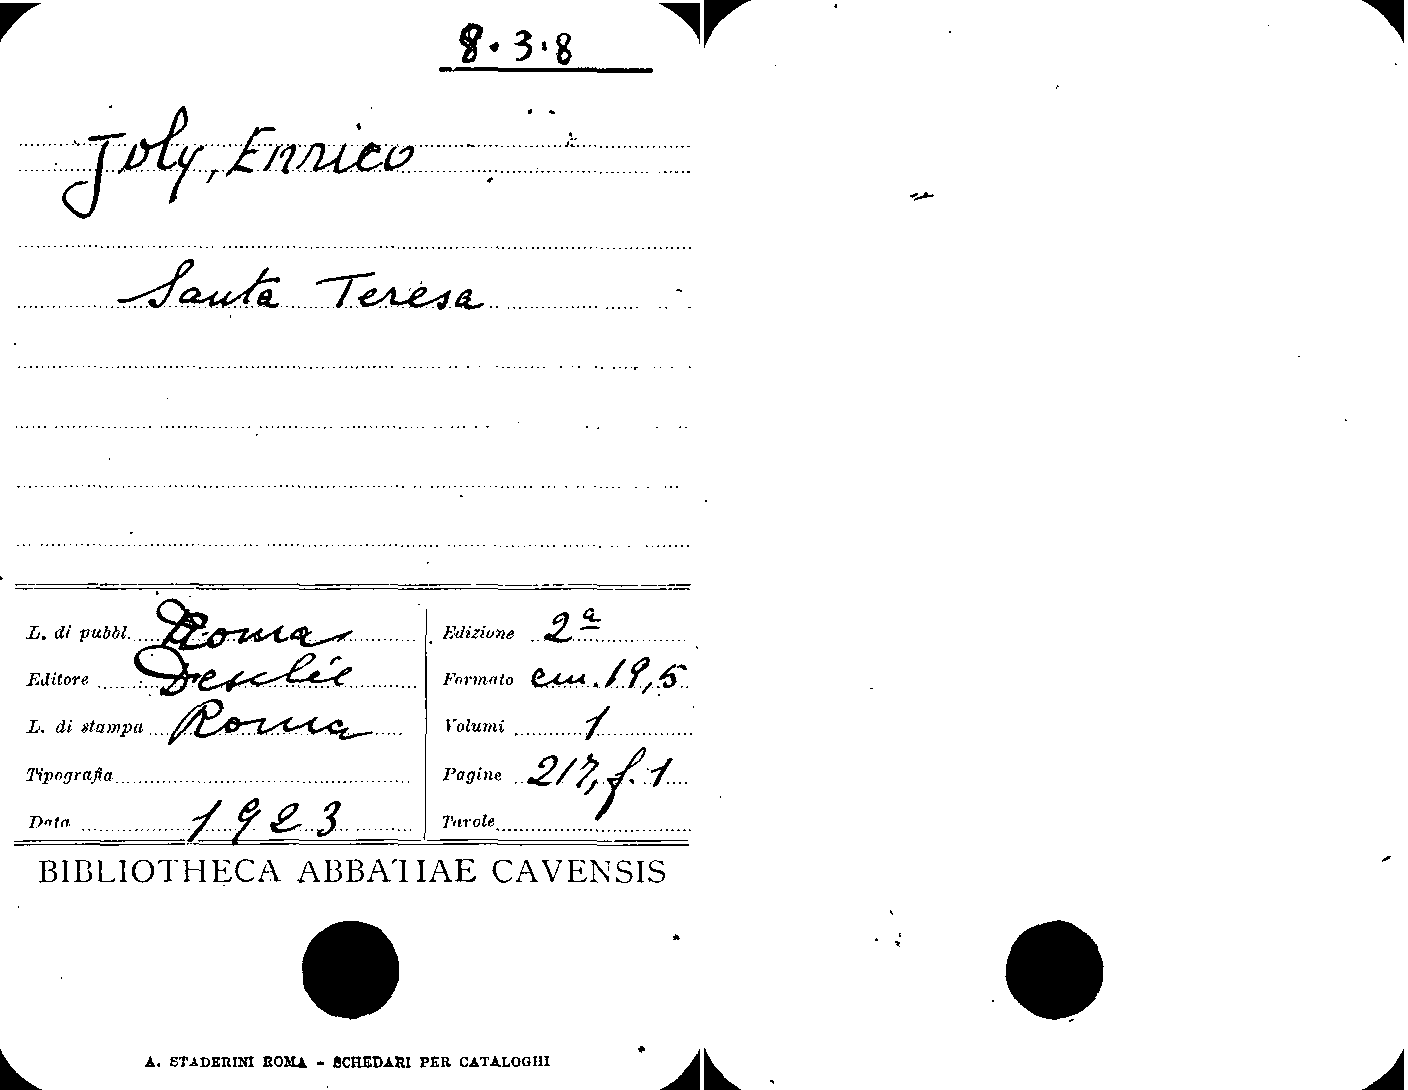 8.3.8
Joly, Enrico
Santa Teresa
L. di pubbl. Roma
Editore Desclée
L. di stampa Roma
Tipografia
Data 1923
Edizione 2ª
Formato cm. 19,5
Volumi 1
Pagine 217, f. 1
Tavole
BIBLIOTHECA ABBATIAE CAVENSIS
A. STADERINI ROMA - SCHEDARI PER CATALOGHI